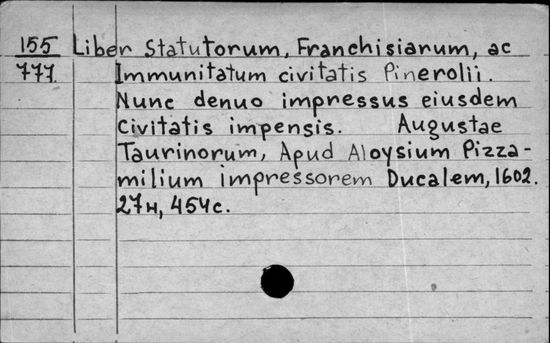 155 Liber Statutorum, Franchisiarum, ac
777 Immunitatum civitatis Pinerolii.
Nunc denuo impressus eiusdem
Civitatis impensis. Augustae
Taurinorum, Apud Aloysium Pizza-
milium impressorem Ducalem, 1602.
27н, 454с.